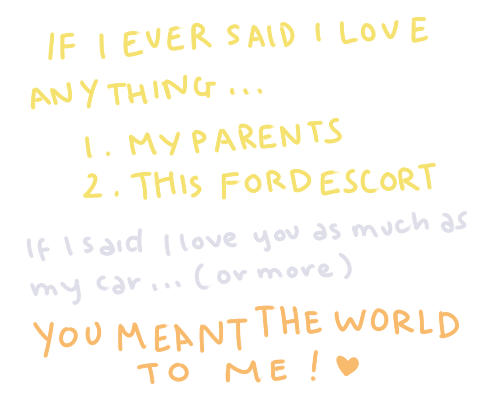 IF I EVER SAID I LOVE
ANYTHING...
1. MY PARENTS
2. THIS FORD ESCORT
If I said I love you as much as
my car... (or more)
YOU MEANT THE WORLD
TO ME! ♥